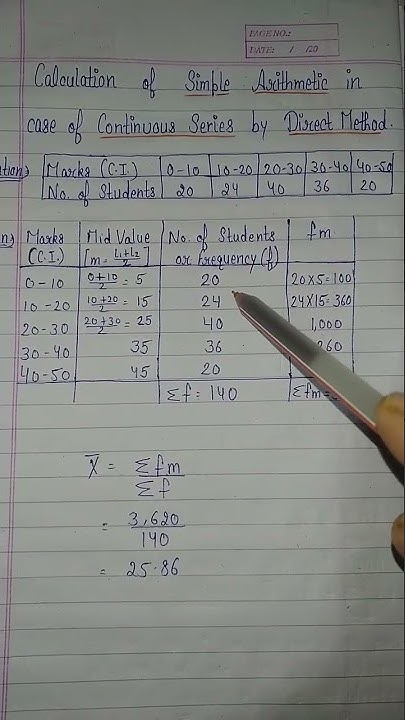 PAGE NO.:
DATE: / /20
Calculation of Simple Arithmetic in
case of Continuous Series by Direct Method.
Marks (C.I.) 0-10 10-20 20-30 30-40 40-50
No. of Students 20 24 40 36 20
Marks Mid Value No. of Students fm
(C.I.) [m = L1+L2/2] or frequency (f)
0-10 0+10/2 = 5 20 20×5=100
10-20 10+20/2 = 15 24 24×15=360
20-30 20+30/2 = 25 40 1,000
30-40 35 36 260
40-50 45 20
Σf = 140 Σfm =
X̄ = Σfm/Σf
= 3,620/140
= 25.86